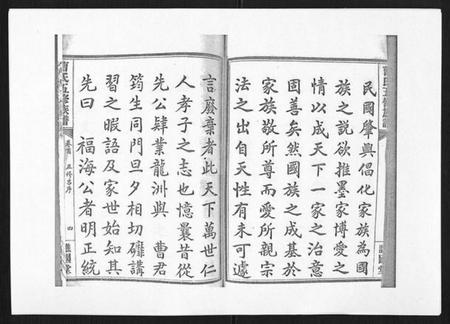 民國肇興倡化家族為國
族之說欲推墨家博愛之
情以成天下一家之治意
固善矣然國族之成基於
家族敬所尊而愛所親宗
法之出自天性有未可遽
言廢棄者此天下萬世仁
人孝子之志也憶曩昔從
先公肄業龍洲與 曹君
筠生同門旦夕相切礲講
習之暇語及家世始知其
先曰 福海公者明正統
曹氏五修族譜
卷首 五修名序
四